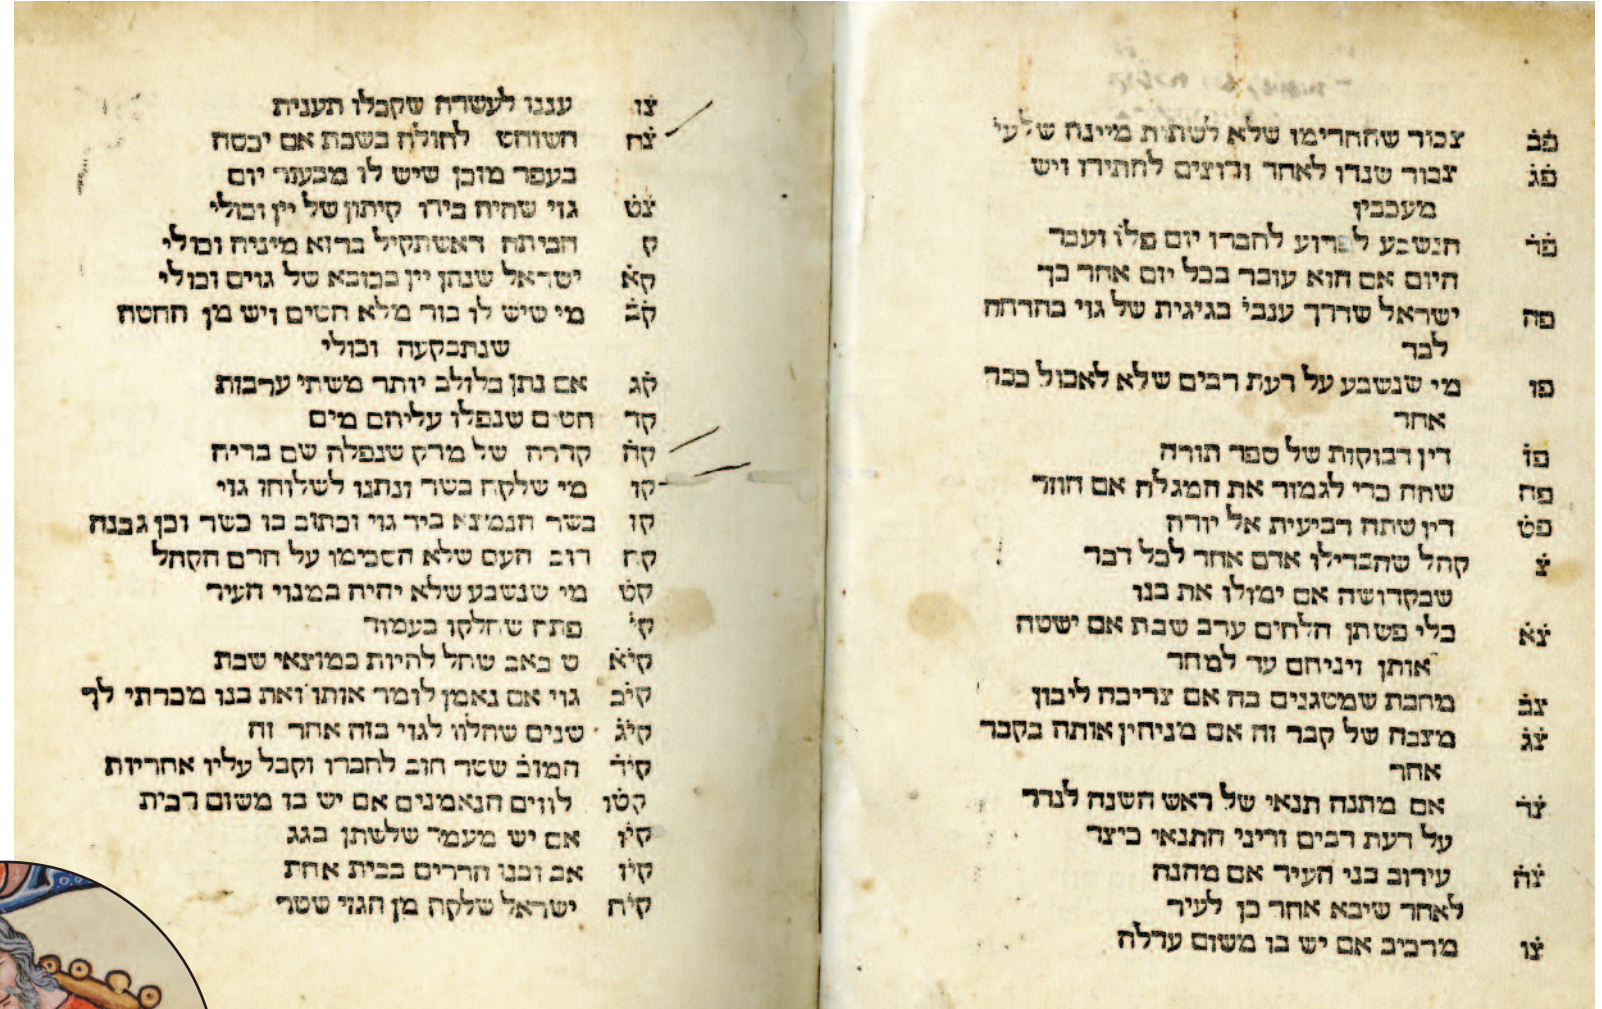 פב צבור שהחרימו שלא לשתות מיינה של עי
פג צבור שנדו לאחד ורוצים להתירו ויש
מעכבין
פד הנשבע לפרוע לחברו יום פלו' ועבר
היום אם הוא עובר בכל יום אחר כך
פה ישראל שדרך ענבי' בגיגית של גוי בהרחה
לבד
פו מי שנשבע על דעת רבים שלא לאכול ככר
אחד
פז דין דבוקות של ספר תורה
פח שחה כדי לגמור את המגלה אם חוזר
פט דין שתה רביעית אל יורה
צ קהל שהבדילו אדם אחד לכל דבר
שבקדושה אם ימולו את בנו
צא כלי פשתן הלחים ערב שבת אם ישטח
אותן ויניחם עד למחר
צב מחבת שמטגנים בה אם צריכה ליבון
צג מצבה של קבר זה אם מניחין אותה בקבר
אחר
צד אם מהנה תנאי של ראש השנה לנדר
על דעת רבים ודיני התנאי כיצד
צה עירוב בני העיר אם מהנה
לאחד שיבא אחר כן לעיר
צו מרכיב אם יש בו משום ערלה
צז עננו לעשרה שקבלו תענית
צח השוחט לחולה בשבת אם יכסה
בעפר מוכן שיש לו מבעוד יום
צט גוי שהיה בידו קיתון של יין וכולי
ק הביתה דאשתקיל ברזא מיניה וכולי
קא ישראל שנתן יין בכובא של גוים וכולי
קב מי שיש לו בור מלא חטים ויש מן החטה
שנתבקעה וכולי
קג אם נתן בלולב יותר משתי ערבות
קד חטים שנפלו עליהם מים
קה קדרה של מרק שנפלה שם בריה
קו מי שלקח בשר ונתנו לשלוחו גוי
קז בשר הנמצא ביד גוי וכתוב בו כשר וכן גבנה
קח רוב העם שלא הסכימו על חרם הקהל
קט מי שנשבע שלא יהיה במנוי העיר
קי פתח שחלקו בעמוד
קיא ט באב שחל להיות במוצאי שבת
קיב גוי אם נאמן לומר אותו ואת בנו מכרתי לך
קיג שנים שהלוו לגוי בזה אחר זה
קיד המוכ' שטר חוב לחברו וקבל עליו אחריות
קטו לווים הנאמנים אם יש בו משום רבית
קיו אם יש מעמד שלשתן בגג
קיז אב ובנו הדרים בבית אחת
קיח ישראל שלקח מן הגוי שטר